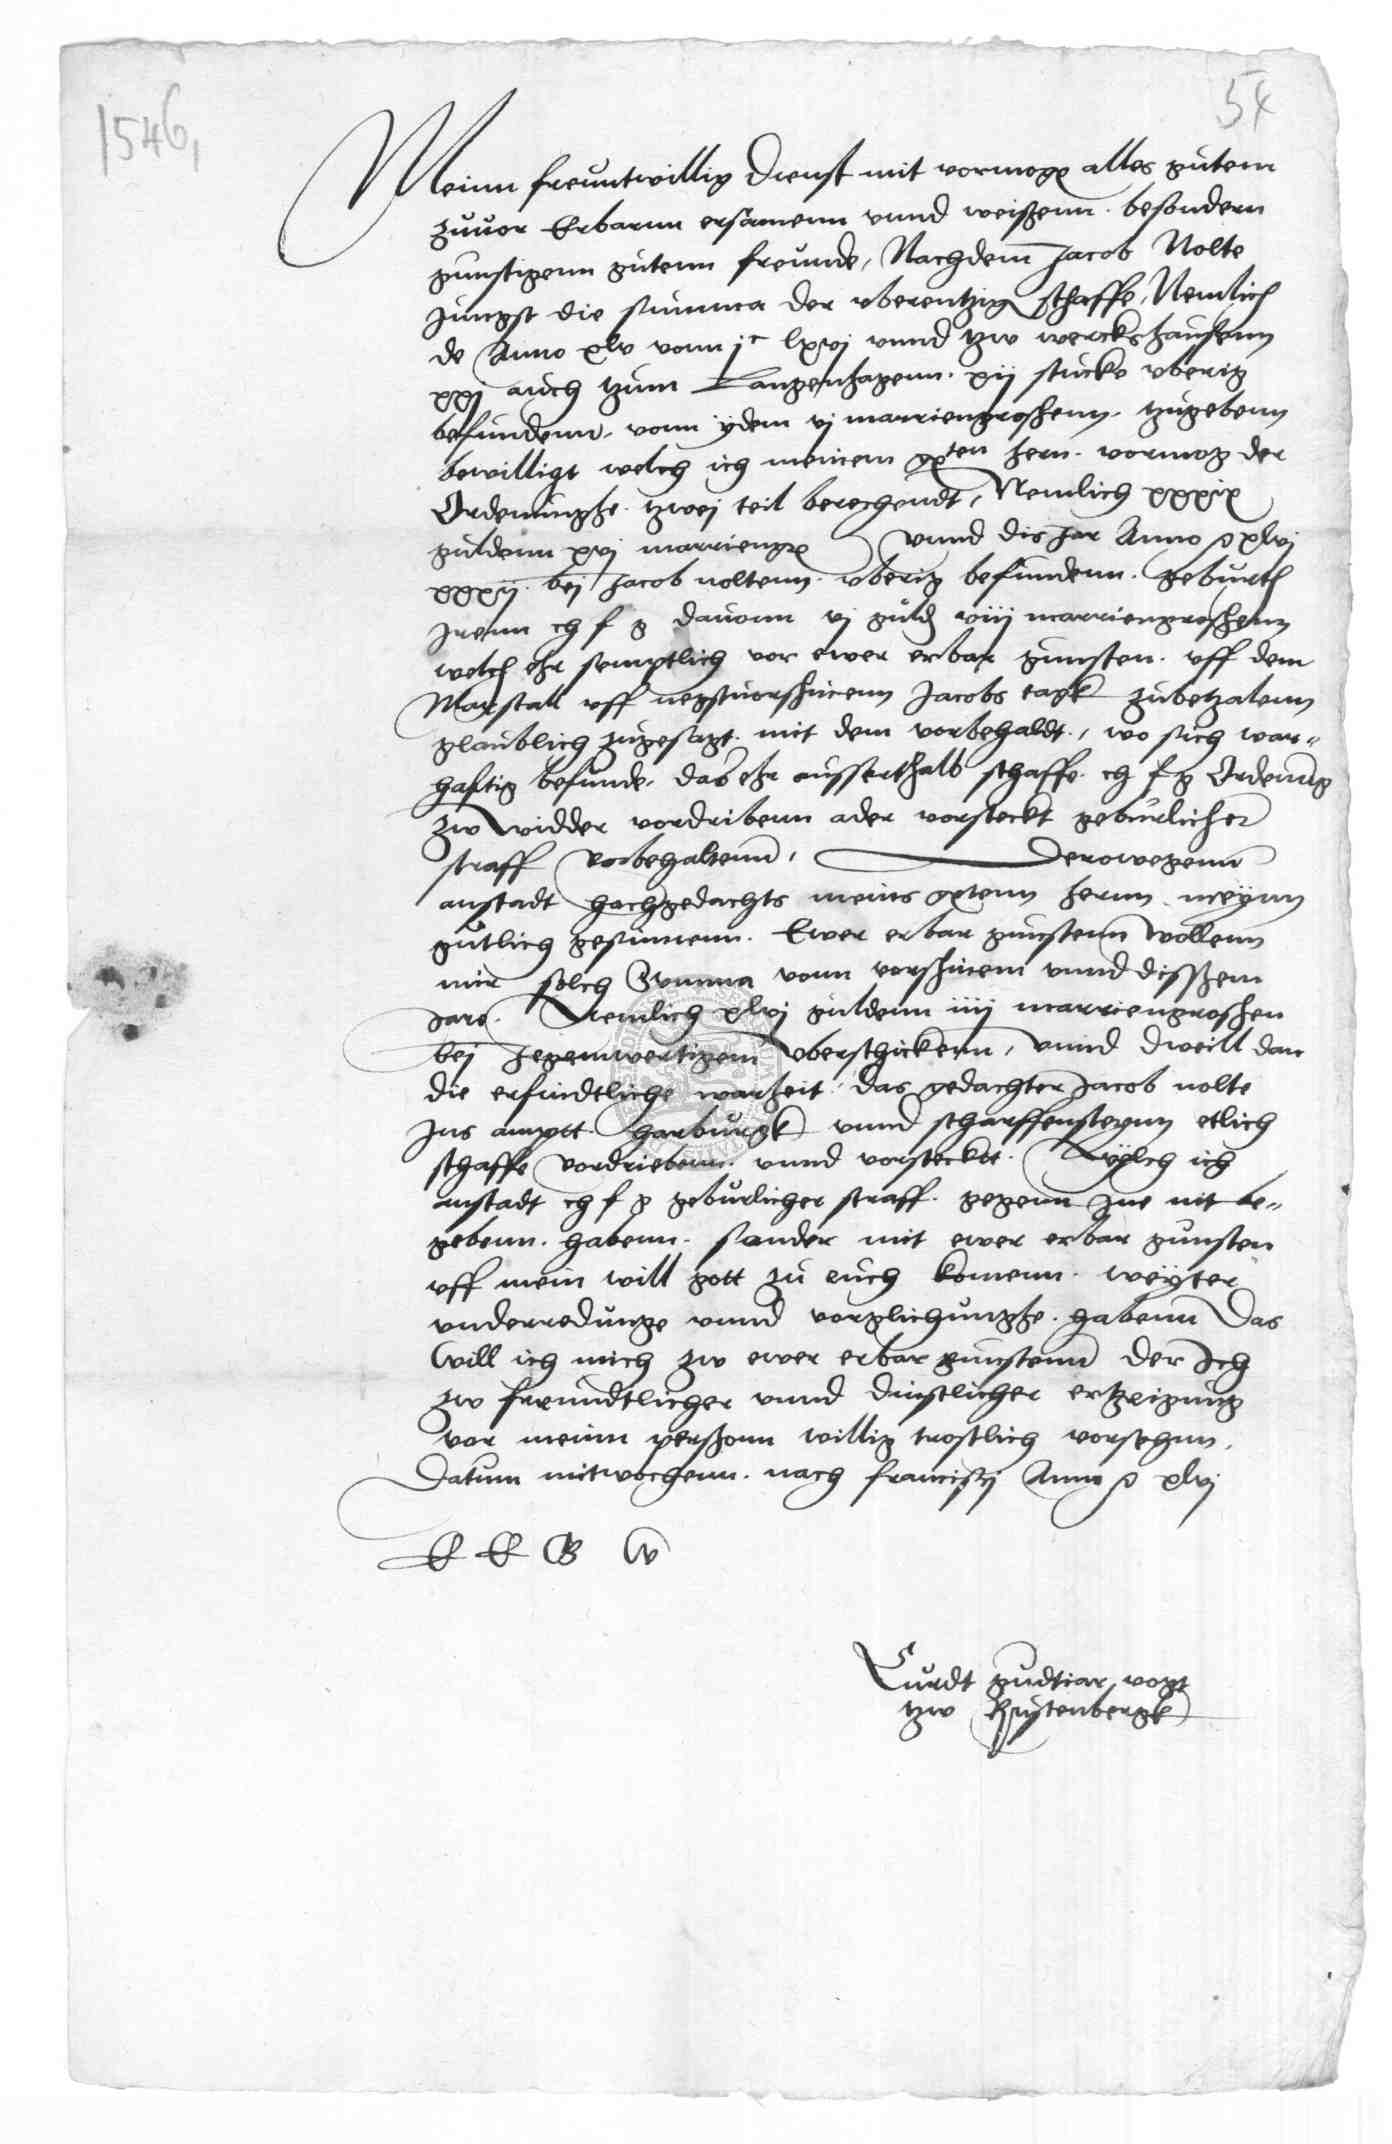 1546,
54
Meinn freuntwillig dienst mit vormoge alles gutem
zuuor Erbarnn ersamenn vnnd weißenn. besondern
gunstigenn gutenn freunde, Nachdem Jacob Nolte
jungst die summa der vberentzig schaffe, Nemlich
de Anno xlv vonn jc lxvj vnnd tzw werckshaußenn
xxj auch tzum Langenhagenn. xij stucke vberig
befundenn. vonn ydem vj marriengroschenn. tzugebenn
bewilligt welch ich meinem gten hern. vormog der
Ordenunghe. zwej teil berechendt, Nemlich xxxix
guldenn xvj marriengr vnnd dis Jar Anno xlvj
xxxij bej Jacob noltenn. vberig befundenn. geburth
Jrenn ch f g dauonn vj guld viij marriengroschenn
welch ehr semptlich vor ewer erbar gunsten. vff dem
Marstall vff negstuorschinenn Jacobs tagk zubetzalenn
glaublich zugesagt. mit dem vorbehaldt, wo sich war-
haftig befunde. das ehr ausserthalb schaffe. ch f g Ordenung
zw widder vordribenn ader vorsteckt geburlicher
straff vorbehaltenn, Derowegenn
anstadt hochgedachts meins gtenn hernn meynn
gutlich gesinnenn. Ewer erbar gunstenn wollenn
mir solch Summa vonn vorschinem vnnd dissem
Jare. Nemlich xlvj guldenn iiij marriengroschen
bej Jegennwertigem vberschickenn, vnnd dweill dan
die erfindtliche warheit. das gedachter Jacob nolte
Jns amptt. harburgk vnnd scharffensteynn etlich
schaffe vordriebenn. vnnd vorsteckt. Wylch ich
anstadt ch f g geburlicher straff. gegenn Jne nit be-
gebenn. habenn. sonder mit ewer erbar gunsten
vff mein will gott zu euch komenn. weyter
vnderredunge vnnd vorglichunghe. habenn Das
will ich mich zw ewer erbar gunstenn der Ich
zw freundtlicher vnnd dinstlicher ertzeigung
vor meinn perßonn willig trostlich vorsehnn.
Datum mitwochenn. nach francisci Anno xlvj
E E G W
Curdt gudtiar vogt
tzw Rustenbergk